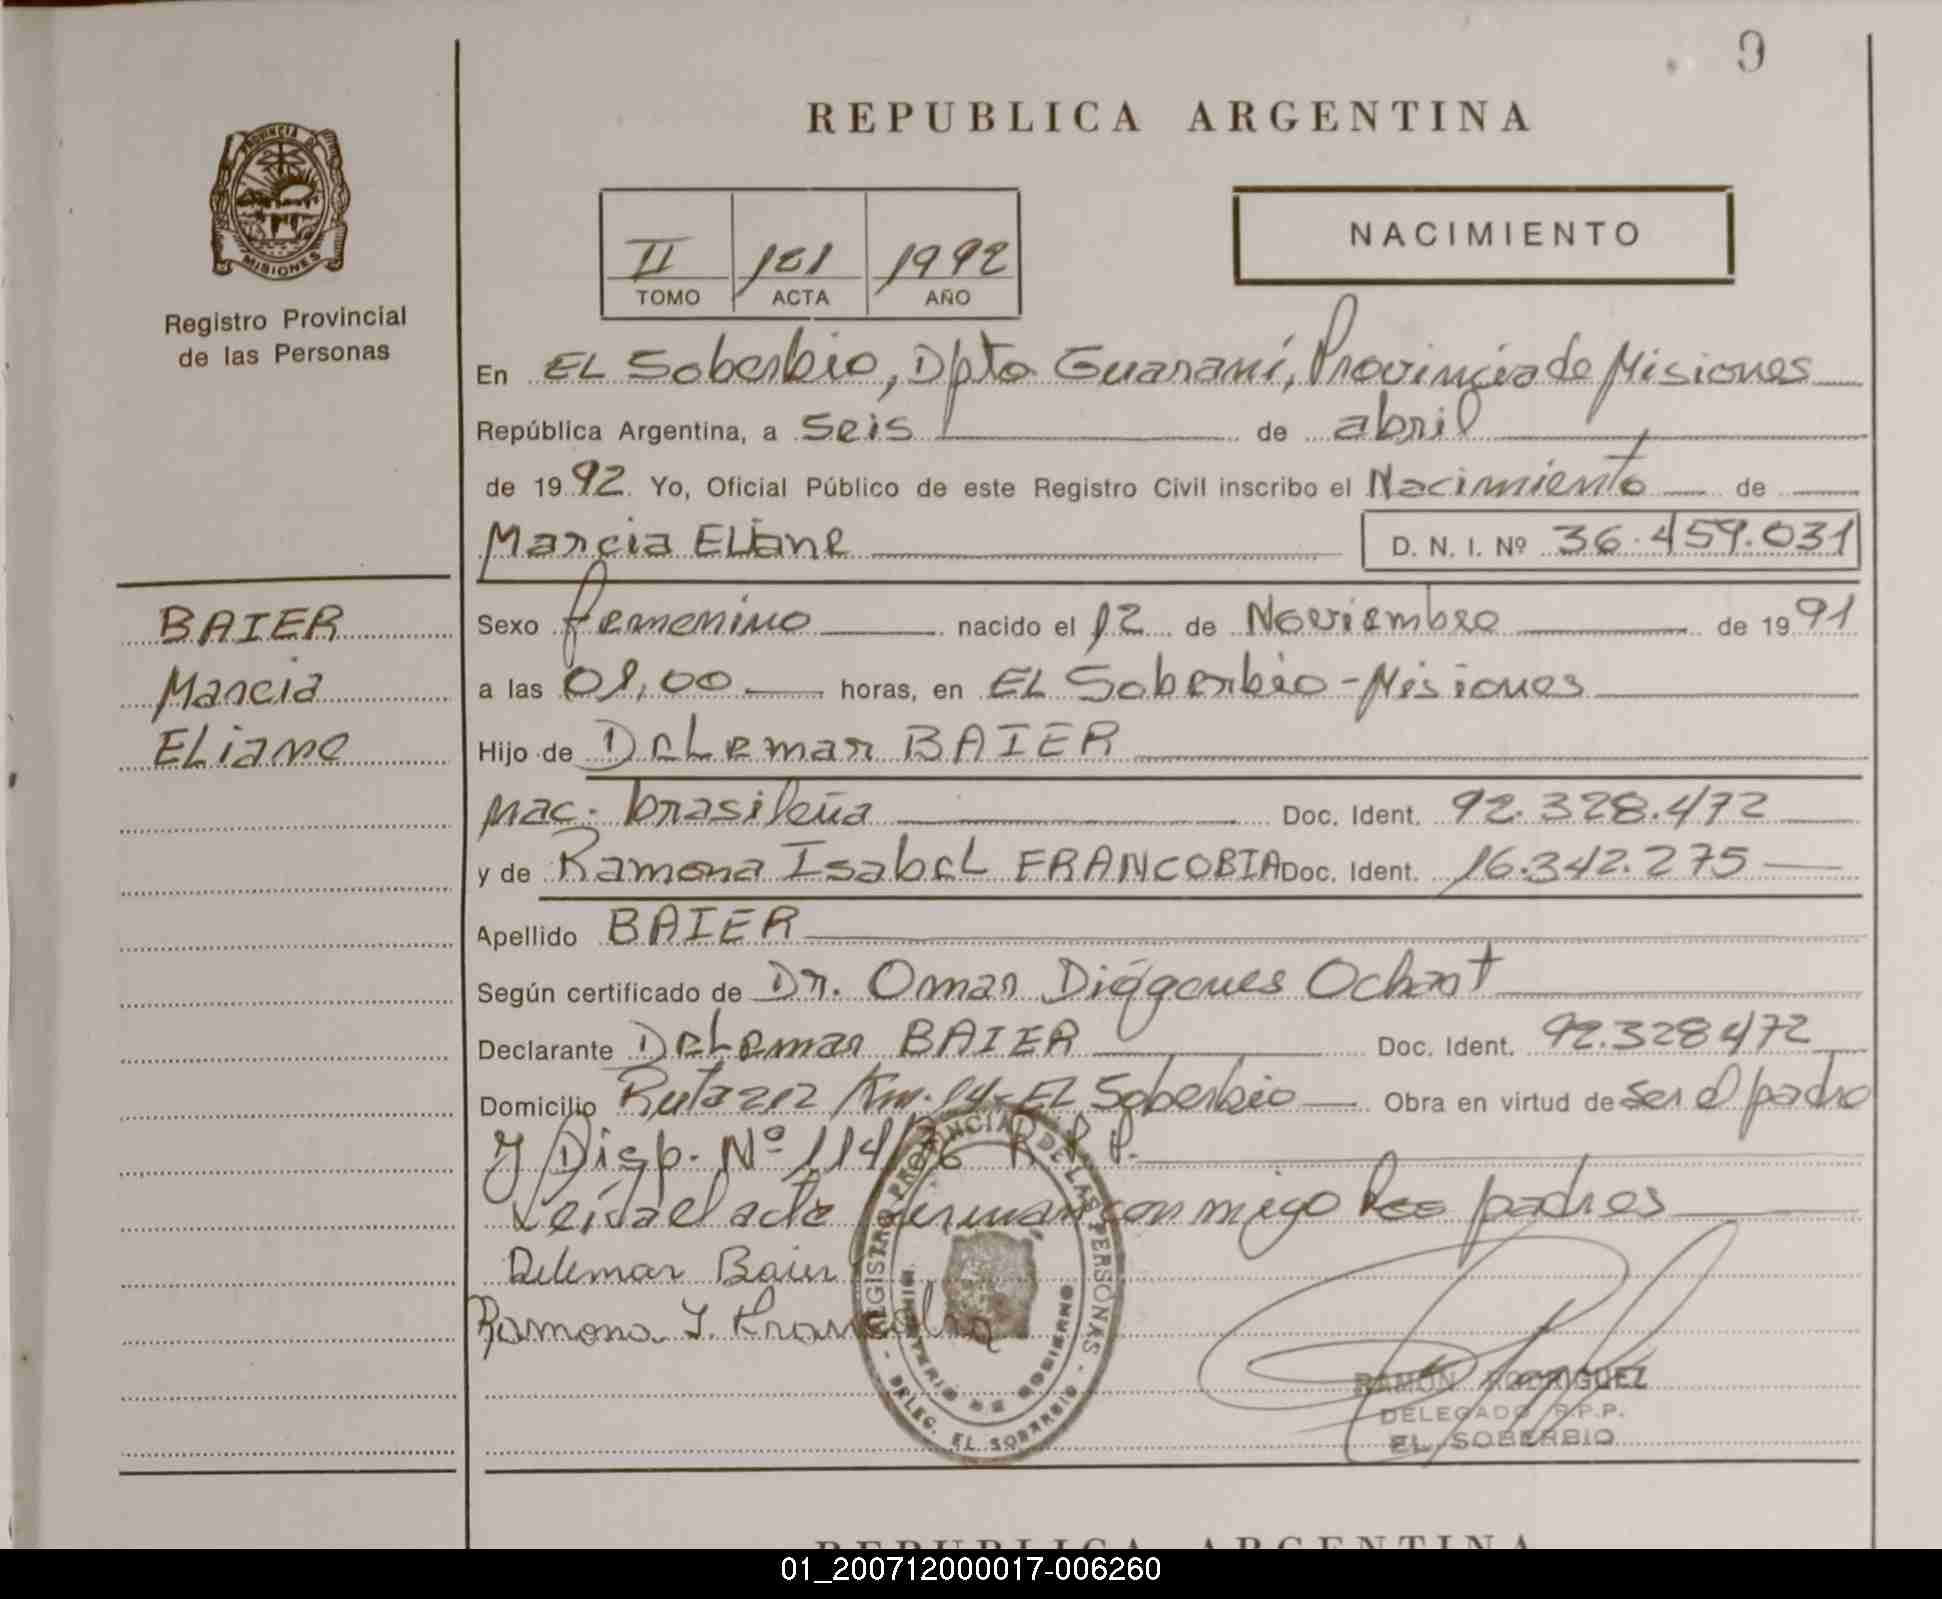 9
REPUBLICA ARGENTINA
PROVINCIA DE
MISIONES
Registro Provincial
de las Personas
NACIMIENTO
II 181 1992
TOMO ACTA AÑO
En EL Soberbio, Dpto Guaraní, Provincia de Misiones
República Argentina, a seis de abril
de 1992. Yo, Oficial Público de este Registro Civil inscribo el Nacimiento de
Marcia ELiane D. N. I. Nº 36.459.031
BAIER
Marcia
ELiane
Sexo femenino nacido el 12 de Noviembre de 1991
a las 01,00 horas, en EL Soberbio - Misiones
Hijo de DeLemar BAIER
Nac. brasileña Doc. Ident. 92.328.472
y de Ramona Isabel FRANCOBIA Doc. Ident. 16.342.275
Apellido BAIER
Según certificado de Dr. Omar Diógenes Ochart
Declarante DeLemar BAIER Doc. Ident. 92.328472
Domicilio Ruta 212 Km. 14 - EL Soberbio Obra en virtud de ser el padre
y Disp. Nº 114/76 R.R.P.
Leída el acta firman conmigo los padres
Delemar Baier
Ramona I.
REGISTRO PROVINCIAL DE LAS PERSONAS
MINISTERIO DE GOBIERNO
- DELEG. EL SOBERBIO -
RAMON RODRIGUEZ
DELEGADO R.P.P.
EL SOBERBIO
REPUBLICA ARGENTINA
01_200712000017-006260